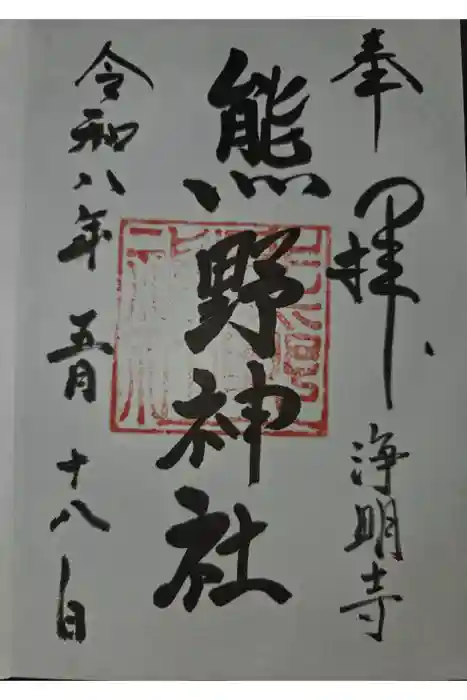 奉拝 浄明寺
熊野神社
令和八年 五月 十八日